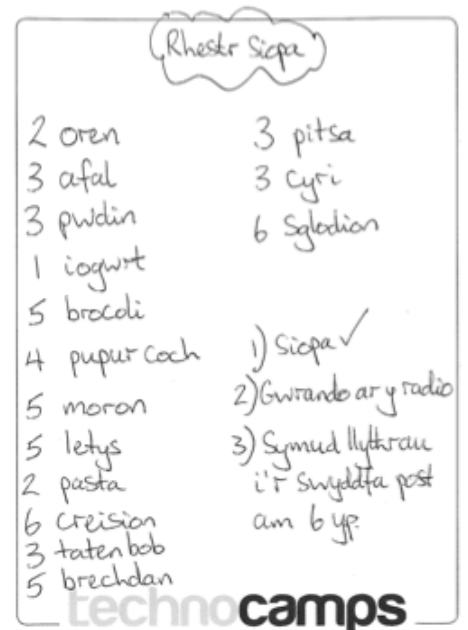 Rhestr Siopa
2 oren
3 afal
3 pwdin
1 iogwrt
5 brocoli
4 pupur coch
5 moron
5 letys
2 pasta
6 creision
3 taten bob
5 brechdan
3 pitsa
3 Cyri
6 Sglodion
1) Siopa ✓
2) Gwrando ar y radio
3) Symud llythrau
i'r Swyddfa post
am 6 yp.
technocamps